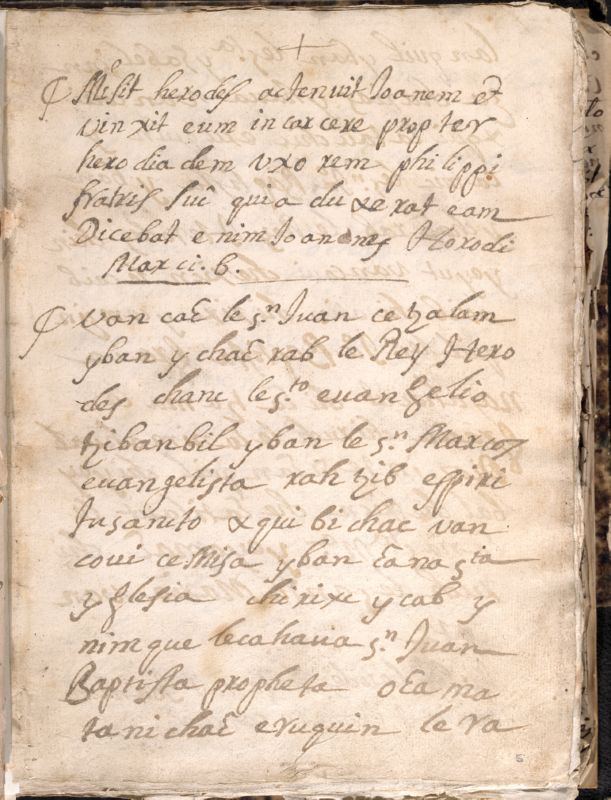 +
Misit herodes actenuit Ioanem et
vinxit eum in carcere propter
herodiadem vxorem philippi
fratris sui quia duxerat eam
Dicebat enim Ioannes Herodi
Marci. 6.
van cać le sn Juan cetzalam
yban y chać rab le Rey Hero
des chanc le sto evangelio
tzibanbil yban le sn Marcos
evangelista rah tzib espiri
tusancto xqui bi chac van
coui ce Missa yban ća na sta
yglesia chi rixc y cab y
nimque lecahaua sn Juan
Baptista propheta oća ma
tani chać eruquin le ra
5